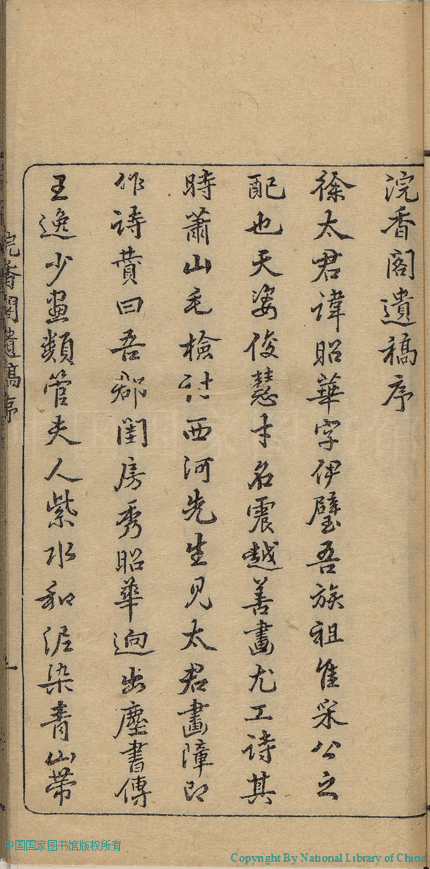 浣香閣遺稿序
徐太君諱昭華字伊璧吾族祖隹采公之
配也天姿俊慧才名震越善畫尤工詩其
時蕭山毛檢討西河先生見太君畫障即
作詩贊曰吾郷閨房秀昭華迥出塵書傳
王逸少畫類管夫人紫水和泥染青山帶
浣香閣遺稿序
中国国家图书馆版权所有
Copyright By National Library of China